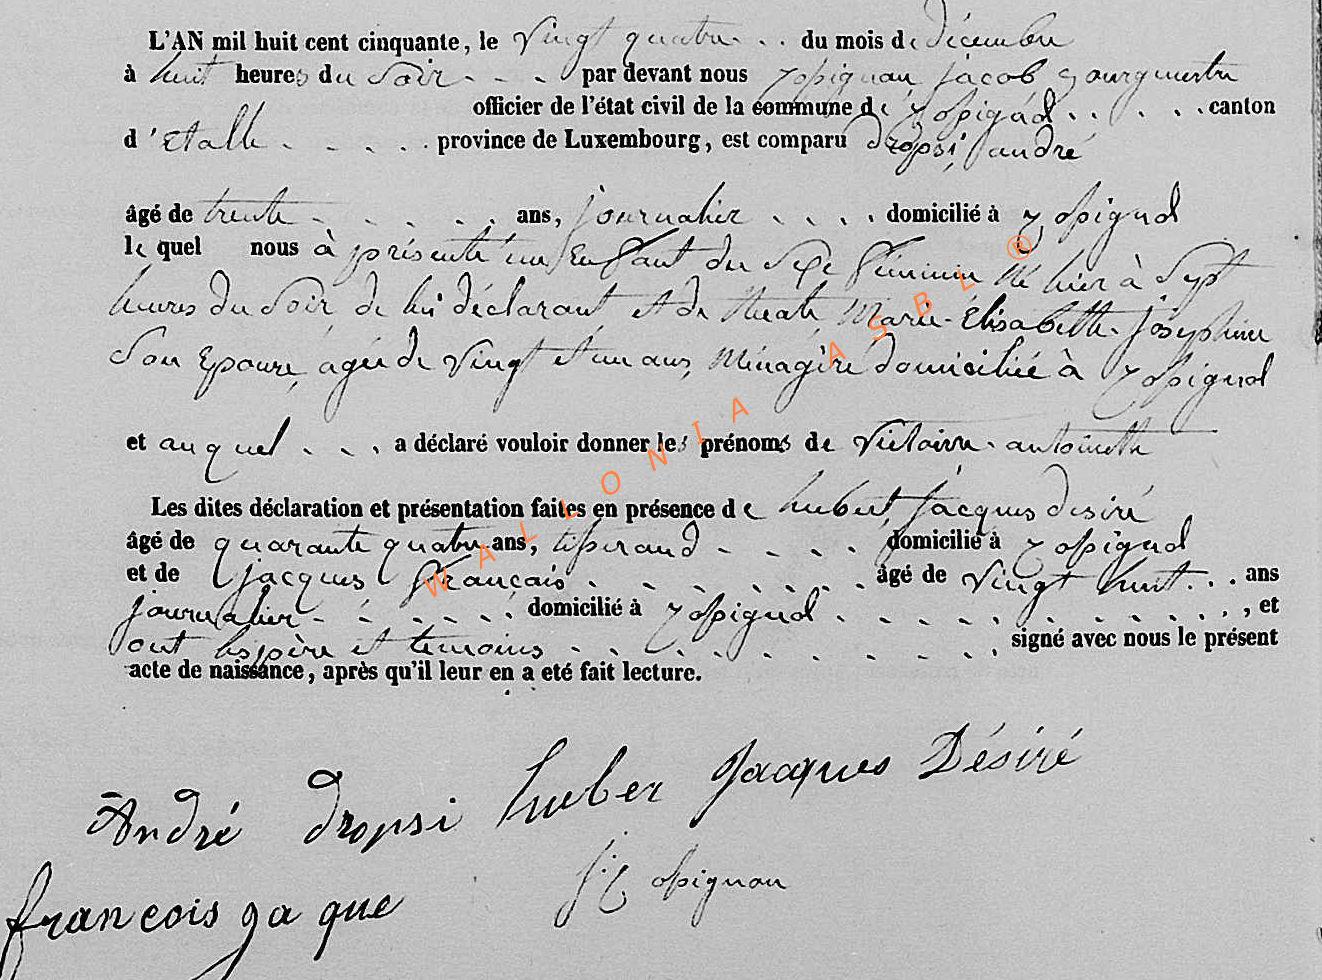 L'AN mil huit cent cinquante, le vingt quatre du mois de décembre
à huit heures du soir par devant nous jacob Bourgmestre
officier de l'état civil de la commune de canton
d'Etalle province de Luxembourg, est comparu dropsi andré
âgé de trente ans, journalier domicilié à
le quel nous à présenté un Enfant du Sexe féminin né hier à Sept
heures du Soir de lui déclarant et de Marie-Elisabette-Joséphine
Son Epouse, agée de vingt et un ans, Ménagère domiciliée à
et auquel a déclaré vouloir donner les prénoms de Victoire-antoinette
Les dites déclaration et présentation faites en présence de hubert jacques desiré
âgé de quarante quatre ans, tisserand domicilié à
et de jacques français âgé de vingt huit ans
journalier domicilié à , et
ont les père et temoins signé avec nous le présent
acte de naissance, après qu'il leur en a eté fait lecture.
André dropsi huber Jacques Désiré
francois ja que
WALLONIA ASBL ®